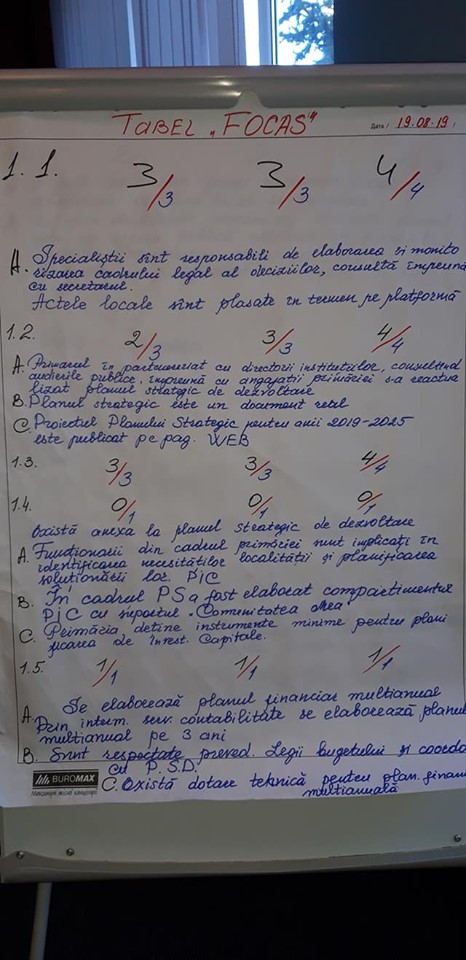 TABEL „FOCAS"
Дата: 19.08.19
1.1. 3/3 3/3 4/4
A. Specialiștii sînt responsabili de elaborarea și monito
rizarea cadrului legal al deciziilor, consultă împreună
cu secretarul.
Actele locale sînt plasate în termen pe platformă
1.2. 2/3 3/3 4/4
A. Primarul în parteneriat cu directorii instituțiilor, consultînd
audierile publice, împreună cu angajații primăriei s-a reactua
lizat planul strategic de dezvoltare
B. Planul strategic este un document
C. Proiectul Planului Strategic pentru anii 2019-2025
este publicat pe pag. WEB
1.3. 3/3 3/3 4/4
1.4. 0/1 0/1 0/1
Există anexa la planul strategic de dezvoltare
A. Funcționarii din cadrul primăriei sunt implicați în
identificarea necesităților localității și planificarea
soluționării lor. PIC
B. În cadrul PS a fost elaborat compartimentul
PIC cu suportul „Comunitatea mea"
C. Primăria, deține instrumente minime pentru plani
ficarea de Invest. Capitale.
1.5. 1/1 1/1 1/1
Se elaborează planul financiar multianual
A. Prin interm. serv. contabilitate se elaborează planul
multianual pe 3 ani
B. Sunt respectate preved. Legii bugetului și coordo
cu P.S.D.
C. Există dotare tehnică pentru plan. finan
multianuală
BUROMAX